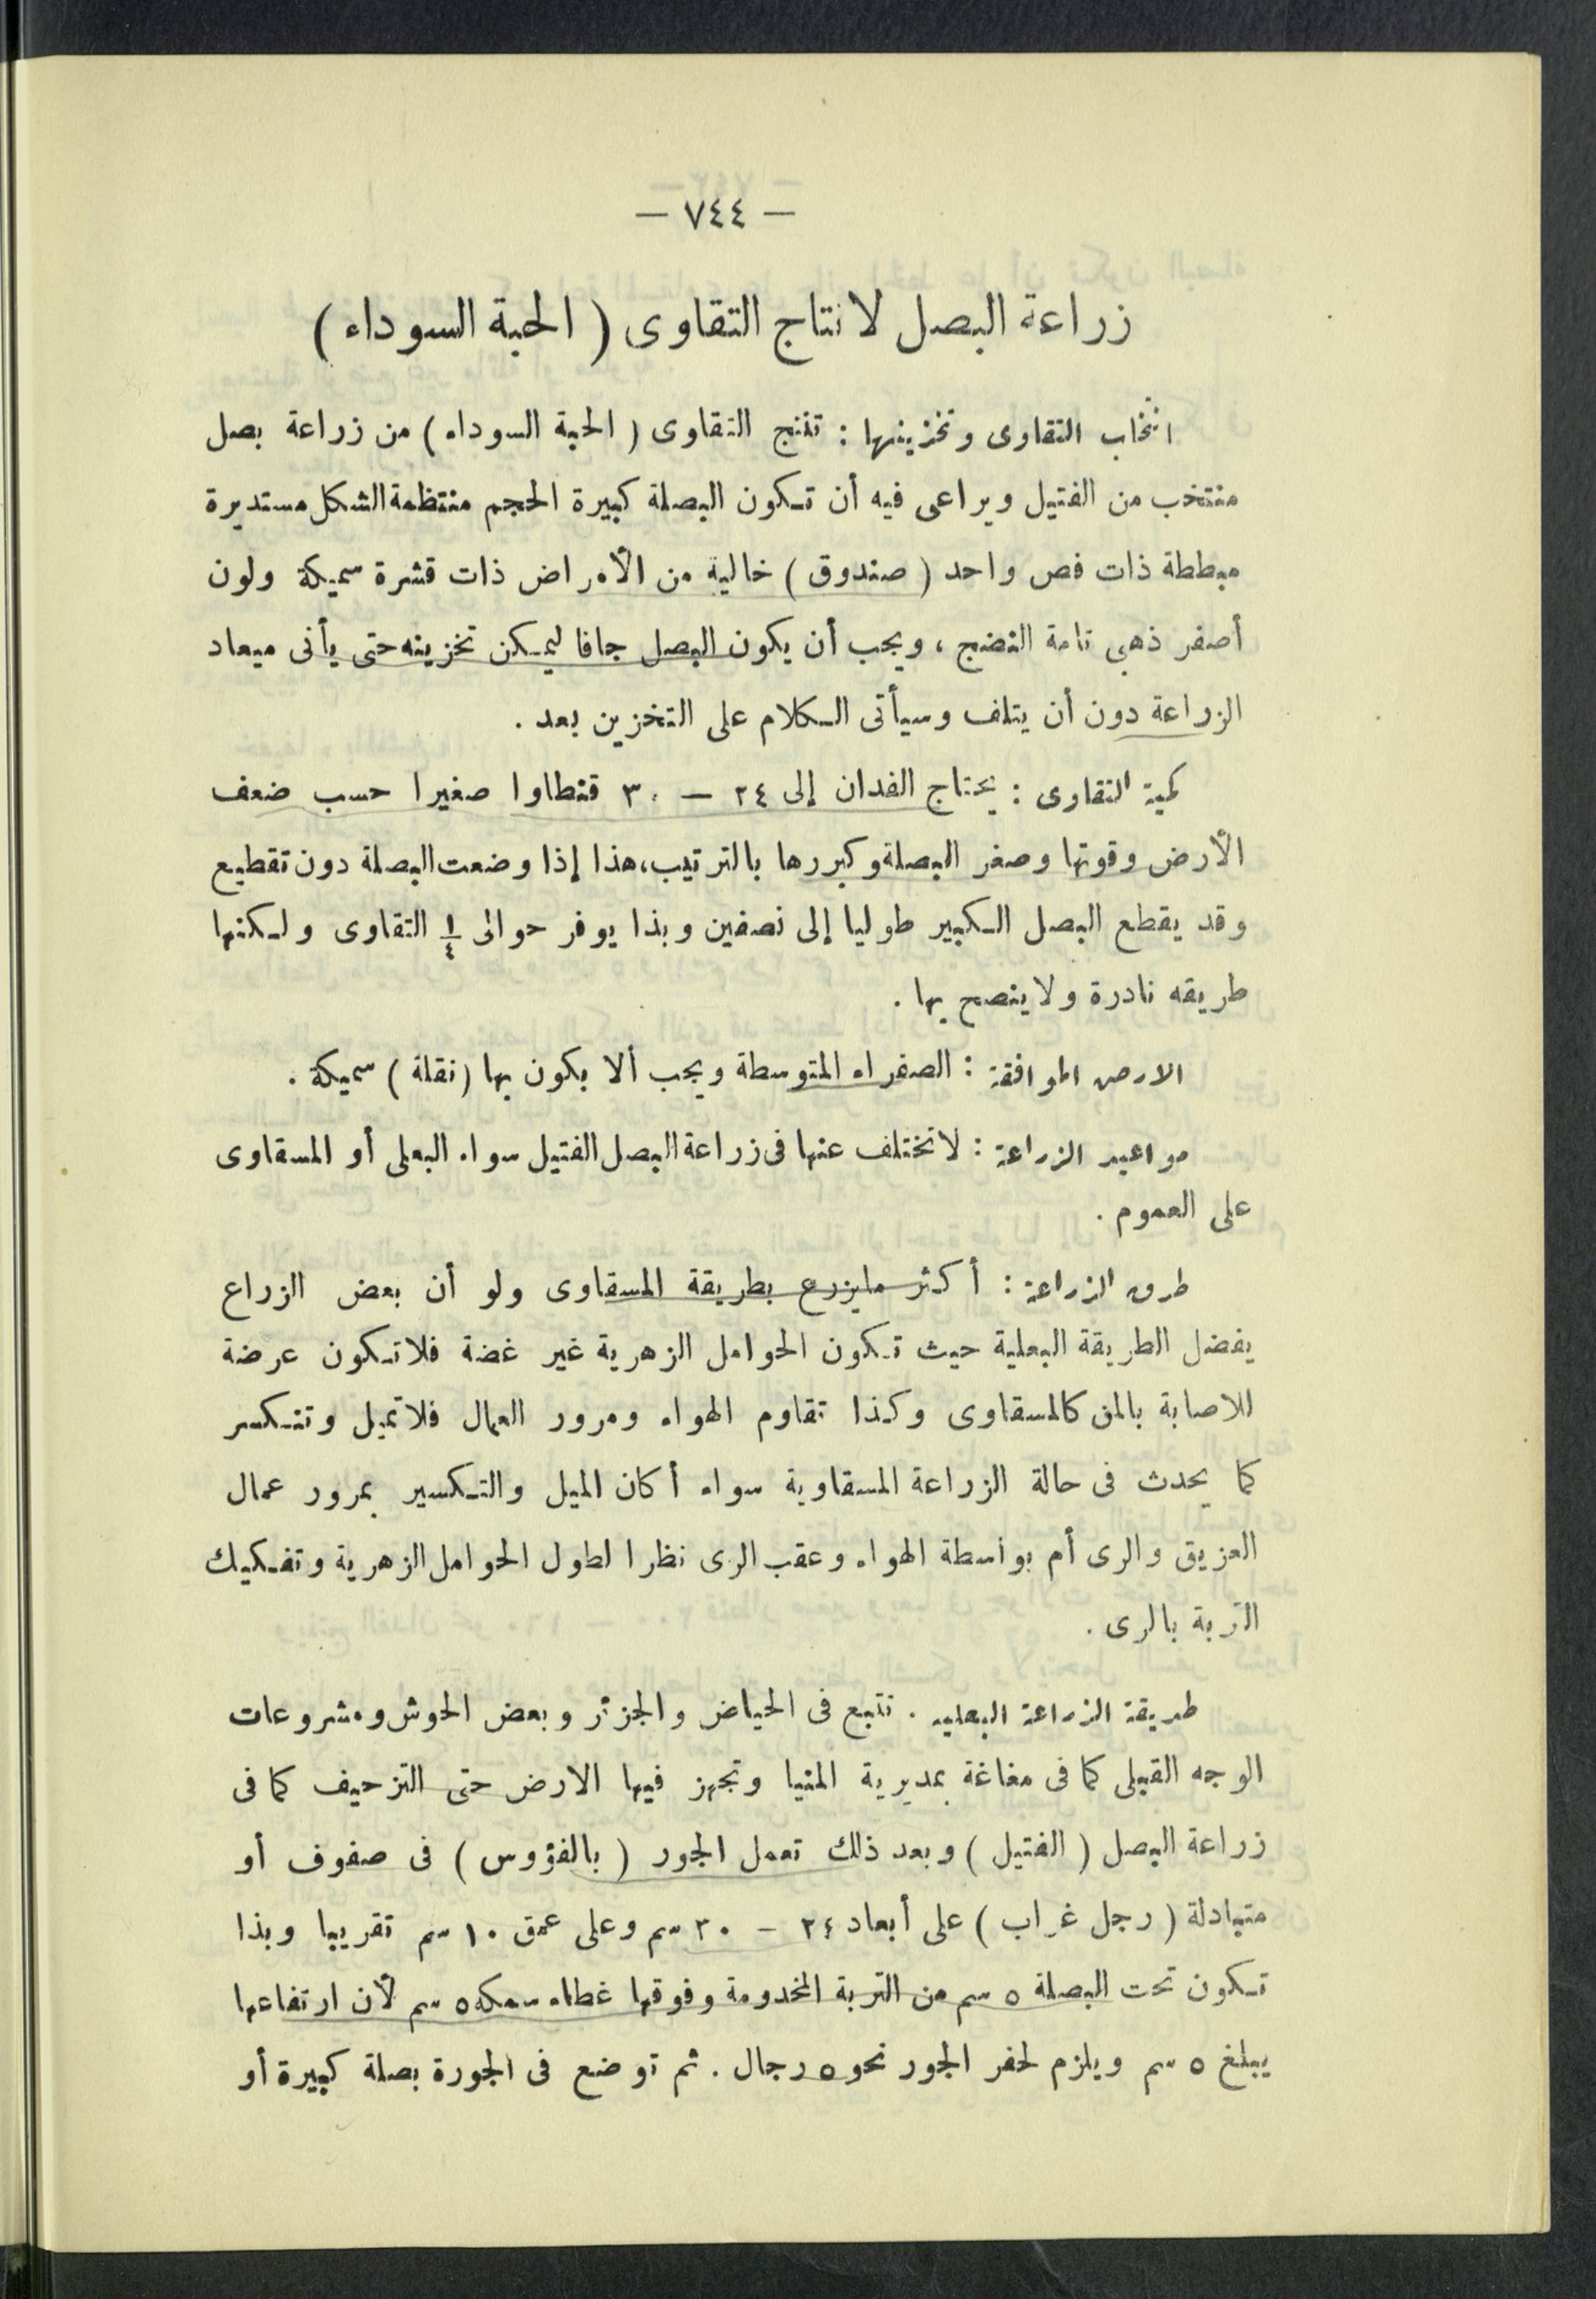 — ٧٤٤ —
زراعة البصل لانتاج التقاوى ( الحبة السوداء )
انتخاب التقاوى وتخزينها : تنتج التقاوى ( الحبة السوداء ) من زراعة بصل
منتخب من الفتيل ويراعى فيه أن تكون البصلة كبيرة الحجم منتظمة الشكل مستديرة
مبططة ذات فص واحد ( صندوق ) خالية من الأمراض ذات قشرة سميكة ولون
أصفر ذهبى تامة النضج ، ويجب أن يكون البصل جافا ليمكن تخزينه حتى يأتى ميعاد
الزراعة دون أن يتلف وسيأتى الكلام على التخزين بعد .
كمية التقاوى : يحتاج الفدان إلى ٢٤ — ٣٠ قنطاوا صغيرا حسب ضعف
الأرض وقوتها وصغر البصلة وكبررها بالترتيب، هذا إذا وضعت البصلة دون تقطيع
وقد يقطع البصل الكبير طوليا إلى نصفين وبذا يوفر حوالى ١/٤ التقاوى ولكنها
طريقه نادرة ولا ينصح بها .
الارض الموافقة : الصفراء المتوسطة ويجب ألا يكون بها ( نقلة ) سميكة .
مواعيد الزراعة : لا تختلف عنها فى زراعة البصل الفتيل سواء البعلى أو المسقاوى
على العموم .
طرق الزراعة : أكثر ما يزرع بطريقة المسقاوى ولو أن بعض الزراع
يفضل الطريقة البعلية حيث تكون الحوامل الزهرية غير غضة فلا تكون عرضة
للاصابة بالمن كالمسقاوى وكذا تقاوم الهواء ومرور العمال فلا تميل وتتكسر
كما يحدث فى حالة الزراعة المسقاوية سواء أكان الميل والتكسير بمرور عمال
العزيق والرى أم بواسطة الهواء وعقب الرى نظرا لطول الحوامل الزهرية وتفكيك
التربة بالرى .
طريقة الزراعة البعليه . تتبع فى الحياض والجزئر وبعض الحوش ومشروعات
الوجه القبلى كما فى مغاغة بمديرية المنيا وتجهز فيها الارض حتى التزحيف كما فى
زراعة البصل ( الفتيل ) وبعد ذلك تعمل الجور ( بالفؤوس ) فى صفوف أو
متبادلة ( رجل غراب ) على أبعاد ٢٤ - ٣٠ سم وعلى عمق ١٠ سم تقريبا وبذا
تكون تحت البصلة ٥ سم من التربة المخدومة وفوقها غطاء سمكه ٥ سم لأن ارتفاعها
يبلغ ٥ سم ويلزم لحفر الجور نحو ٥ رجال . ثم توضع فى الجورة بصلة كبيرة أو